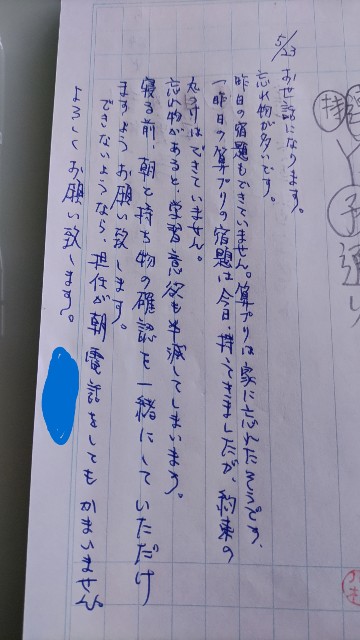 5/23
お世話になります。
忘れ物が多いです。
昨日の宿題もできていません。算プリは家に忘れたそうです。
一昨日の算プリの宿題は今日、持ってきましたが、約束の
丸つけはできていません。
忘れ物があると、学習意欲も半減してしまいます。
寝る前、朝と持ち物の確認を一緒にしていただけ
ますようお願い致します。
できないようなら、担任が朝電話をしてもかまいません。
よろしくお願い致します。
持
子